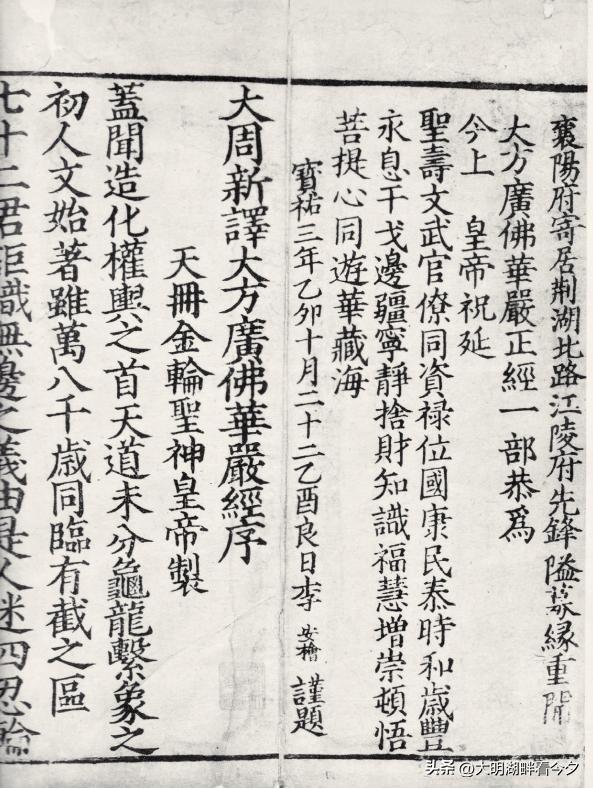 襄陽府寄居荆湖北路江陵府先鋒隘募縁重開
大方廣佛華嚴正經一部恭爲
今上 皇帝祝延
聖壽文武官僚同資禄位國康民泰時和歳豐
永息干戈邊疆寧靜捨財知識福慧增崇頓悟
菩提心同遊華藏海
寳祐三年乙卯十月二十二乙酉良日李 安檜 謹題
大周新譯大方廣佛華嚴經序
天冊金輪聖神皇帝製
蓋聞造化權輿之首天道未分龜龍繫象之
初人文始著雖萬八千歳同臨有截之區
七十二君詎識無邊之義由是人迷四忍論
头条 @大明湖畔看今夕